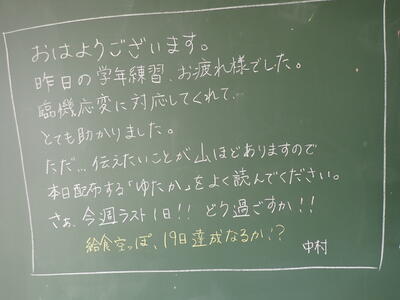 おはようございます。
昨日の学年練習、お疲れ様でした。
臨機応変に対応してくれて、
とても助かりました。
ただ…伝えたいことが山ほどありますので
本日配布する「ゆたか」をよく読んでください。
さぁ、今週ラスト1日!! どう過ごすか!!
給食空っぽ、19日達成なるか!?
中村